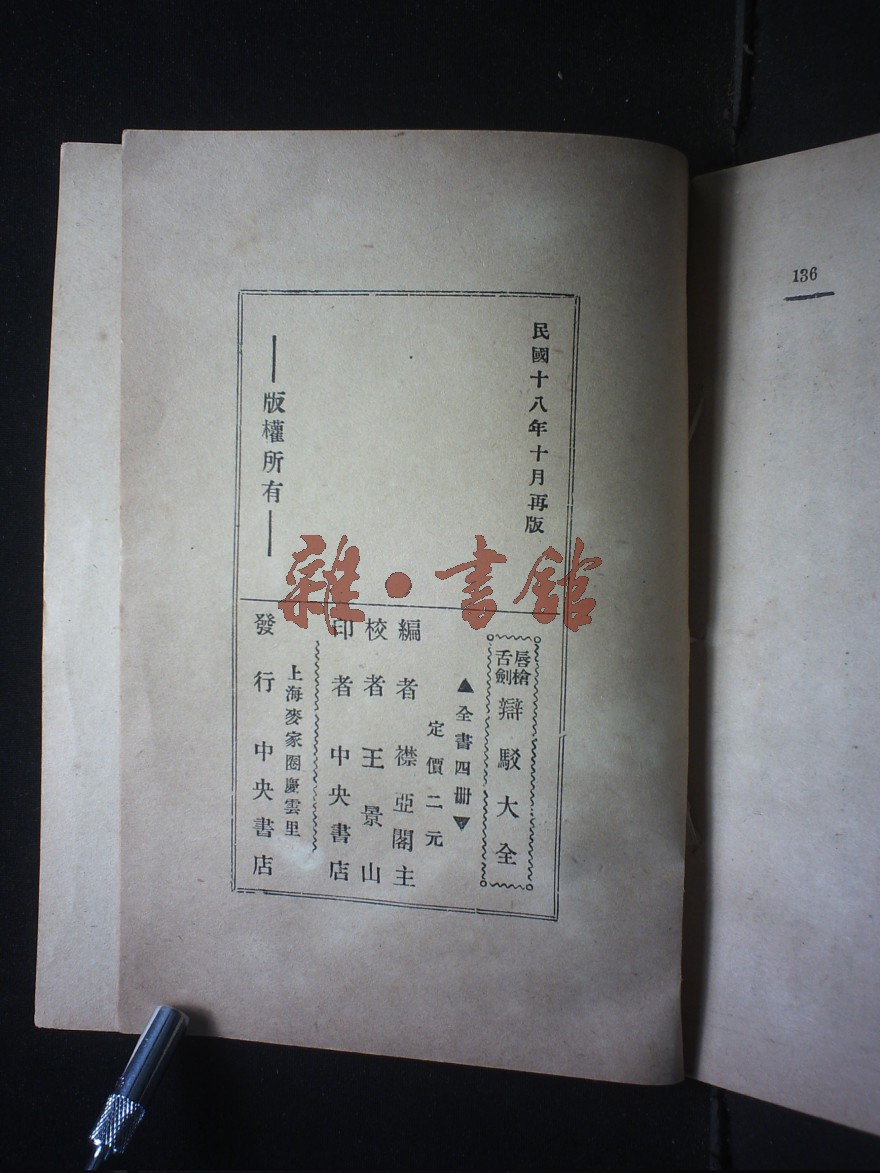 136
民國十八年十月再版
版權所有
雜·書館
唇槍
舌劍
辯駁大全
▲全書四册▼
定價二元
編者 襟亞閣主
校者 王景山
印者 中央書店
上海麥家圈慶雲里
發行 中央書店